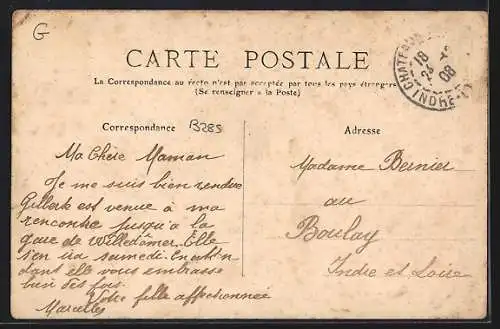 G
CARTE POSTALE
La Correspondance au recto n'est pas acceptée par tous les pays étrangers
(Se renseigner a la Poste)
CHATEAU
18
24
08
INDRE-ET
Correspondance
B285
Adresse
Ma Chère Maman
Je me suis bien rendue
Gilberte est venue à ma
rencontre jusqu'a la
gare de Willedômer. Elle
s'en ira samedi. En attin
dant elle vous embrasse
bien des fois.
Votre fille affectionnée
Marcelle
Madame Bernier
au
Boulay
Indre et Loire